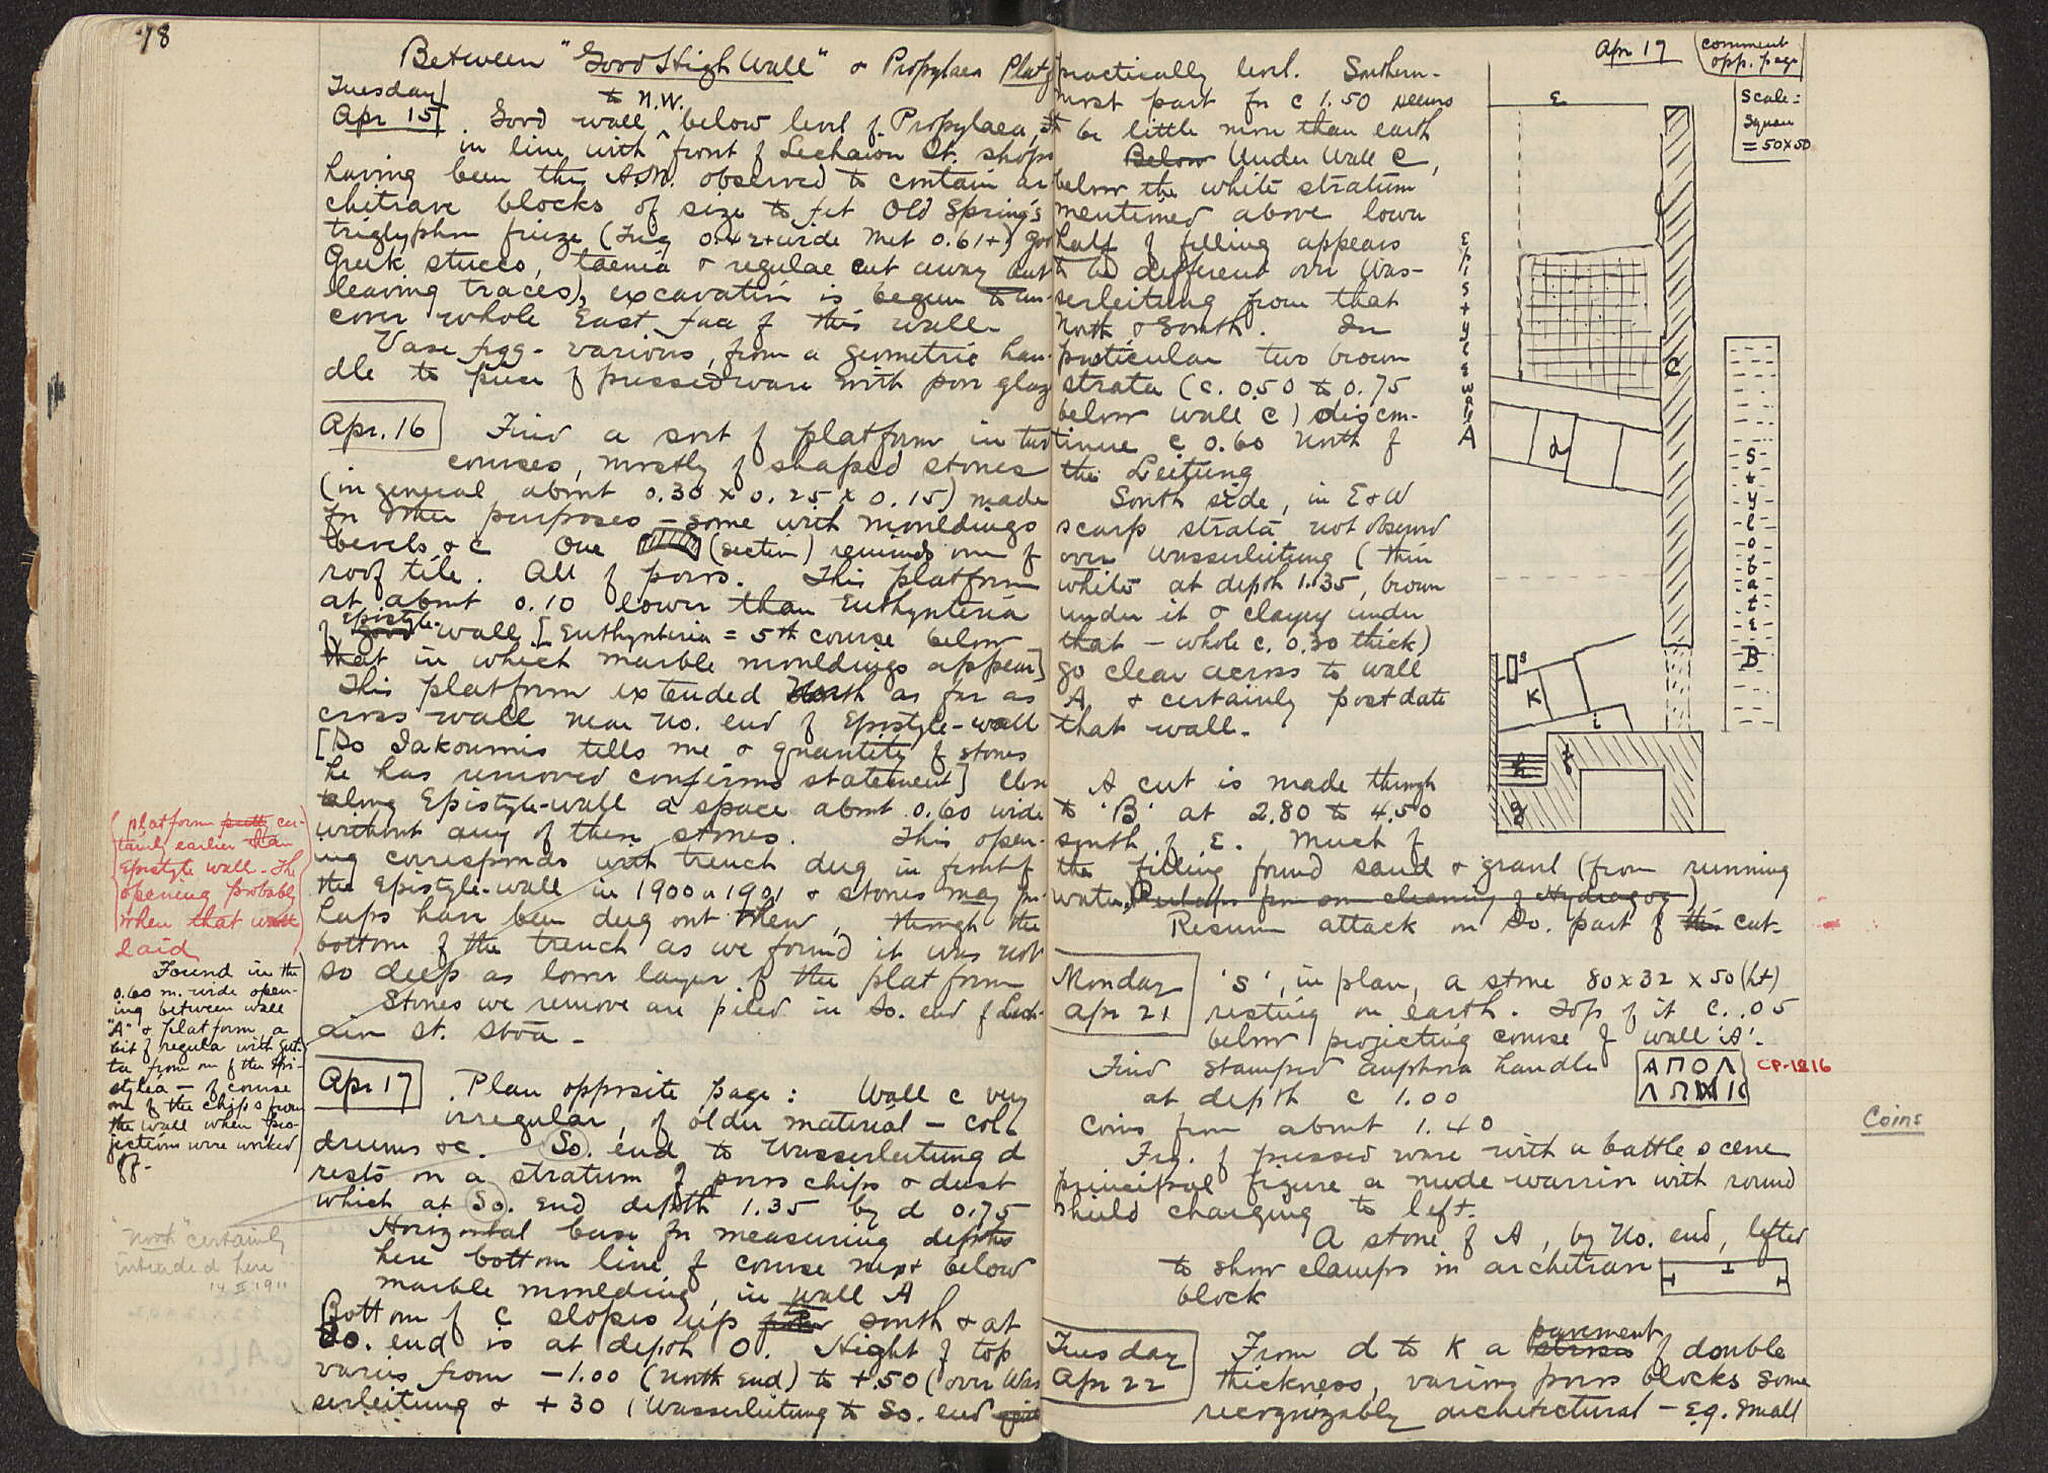 78
Between "Good High Wall" & Propylaea Platf
Tuesday
Apr 15
Good wall to N.W. below level of Propylaea, &
in line with front of Lechaion St. shops
having been this A.M. observed to contain ar-
chitrave blocks of size to fit Old Spring's
triglyphon frieze (Trig 0.42+ wide Met 0.61+) good
Greek stucco, taenia & regulae cut away but
leaving traces), excavation is begun to un-
cover whole East face of this wall.
Vase fgg - various, from a geometric han-
dle to piece of pressed ware with poor glaze
Apr. 16
Find a sort of platform in two
courses, mostly of shaped stones
(in general about 0.30 x 0.25 x 0.15) made
for other purposes - some with mouldings
bevels &c One (section) reminds one of
roof tile. All of poros. This platform
at about 0.10 lower than Euthynteria
of Good Epistyle-wall [Euthynteria = 5th course below
that in which marble mouldings appear]
This platform extended North as far as
cross wall near No. end of Epistyle-wall
[So Iakoumis tells me & quantity of stones
he has removed confirms statement] Close
along Epistyle-wall a space about 0.60 wide
without any of them stones. This open-
ing corresponds with trench dug in front of
the Epistyle-wall in 1900 or 1901 & stones may per-
haps have been dug out then, though the
bottom of the trench as we found it was not
so deep as lower layer of the platform
Stones we remove are piled in So. end of Lech-
aion St. Stoa -
platform certainly
earlier than
Epistyle wall - The
opening probably
when that wall
laid
Found in the
0.60 m. wide open-
ing between wall
"A" & platform a
bit of regula with gut-
ta from one of the epi-
stylia - of course
one of the chips from
the wall when pro-
jections were worked
off -
Apr 17
Plan opposite page: Wall C very
irregular, of older material - col.
drums &c. So. end to Wasserleitung d
rests on a stratum of poros chips & dust
which at So. end depth 1.35 by d 0.75
Horizontal base for measuring depths
here bottom line of course next below
marble moulding, in wall A
"North" certainly
intended here
14 II 1911
Bottom of C slopes up south & at
So. end is at depth 0. Height of top
varies from -1.00 (north end) to +.50 (over Was
serleitung & +30 (Wasserleitung to So. end
practically level. Southern-
most part for c 1.50 seems
to be little more than earth
Below Under Wall C,
below the white stratum
mentioned above lower
half of filling appears
to be different over Was-
serleitung from that
North & South. In
particular two brown
strata (c. 0.50 to 0.75
below wall C) discon-
tinue c 0.60 North of
the Leitung
South side, in E & W
scarp strata not observed
over Wasserleitung (thin
white at depth 1.35, brown
under it & clayey under
that - whole c. 0.30 thick)
go clear across to wall
A & certainly postdate
that wall.
A cut is made through
to 'B' at 2.80 to 4.50
south of E. Much of
the filling found sand & gravel (from running
water, Perhaps from one cleaning of Hydragog)
Resume attack on So. part of this cut.
Apr 17
comment
opp. page
Scale:
Square
= 50x50
E
Epistyle wall A
C
d
Stylobate B
S
K
i
h
f
g
Monday
Apr 21
'S', in plan, a stone 80x32x50 (ht)
resting on earth. Top of it c. .05
below projecting course of wall 'A'.
Find stamped amphora handle
at depth c 1.00
ΑΠΟΛ
CP-1816
Coins from about 1.40
Coins
Frg. of pressed ware with a battle scene
principal figure a nude warrior with round
shield charging to left.
A stone of A, by No. end, lifted
to show clamps in architrave
block
Tuesday
Apr 22
From d to K a stereo pavement of double
thickness, various poros blocks some
recognizably architectural - e.g. small